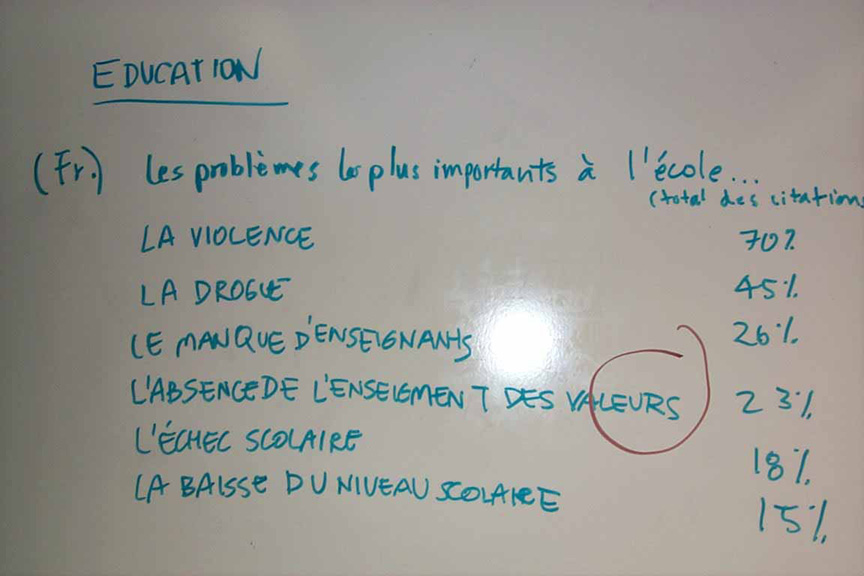 EDUCATION
(Fr.) Les problèmes les plus importants à l'école...
(total des citations
LA VIOLENCE 70%
LA DROGUE 45%
LE MANQUE D'ENSEIGNANTS 26%
L'ABSENCE DE L'ENSEIGMENT DES VALEURS 23%
L'ÉCHEC SCOLAIRE 18%
LA BAISSE DU NIVEAU SCOLAIRE 15%